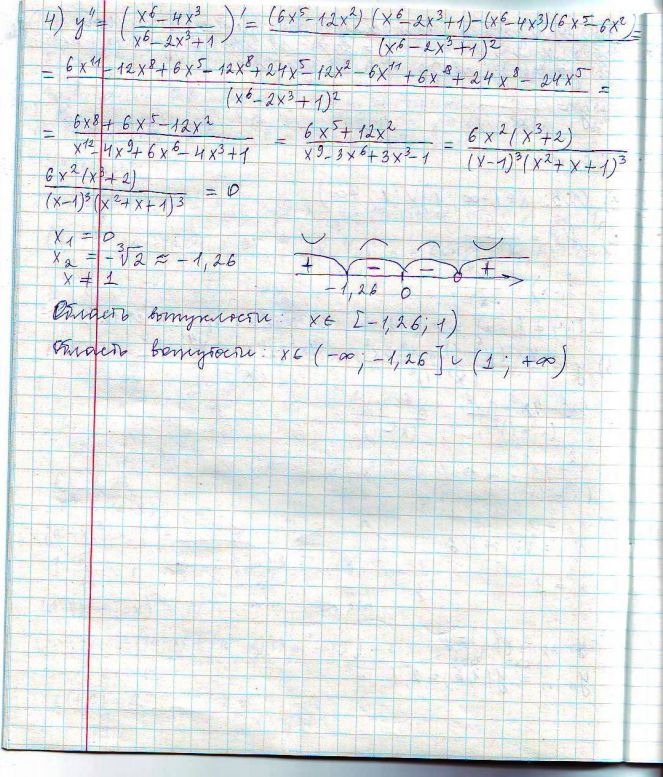 4) y'' = ( (x⁶ - 4x³) / (x⁶ - 2x³ + 1) )' = ( (6x⁵ - 12x²)(x⁶ - 2x³ + 1) - (x⁶ - 4x³)(6x⁵ - 6x²) ) / (x⁶ - 2x³ + 1)² =
= (6x¹¹ - 12x⁸ + 6x⁵ - 12x⁸ + 24x⁵ - 12x² - 6x¹¹ + 6x⁸ + 24x⁸ - 24x⁵) / (x⁶ - 2x³ + 1)² =
= (6x⁸ + 6x⁵ - 12x²) / (x¹² - 4x⁹ + 6x⁶ - 4x³ + 1) = (6x⁵ + 12x²) / (x⁹ - 3x⁶ + 3x³ - 1) = 6x²(x³ + 2) / ((x - 1)³(x² + x + 1)³)
6x²(x³ + 2) / ((x - 1)³(x² + x + 1)³) = 0
x₁ = 0
x₂ = -∛2 ≈ -1,26
x ≠ 1
+ - - +
-1,26 0
Область выпуклости: x ∈ [-1,26; 1)
Область вогнутости: x ∈ (-∞; -1,26] ∪ (1; +∞)